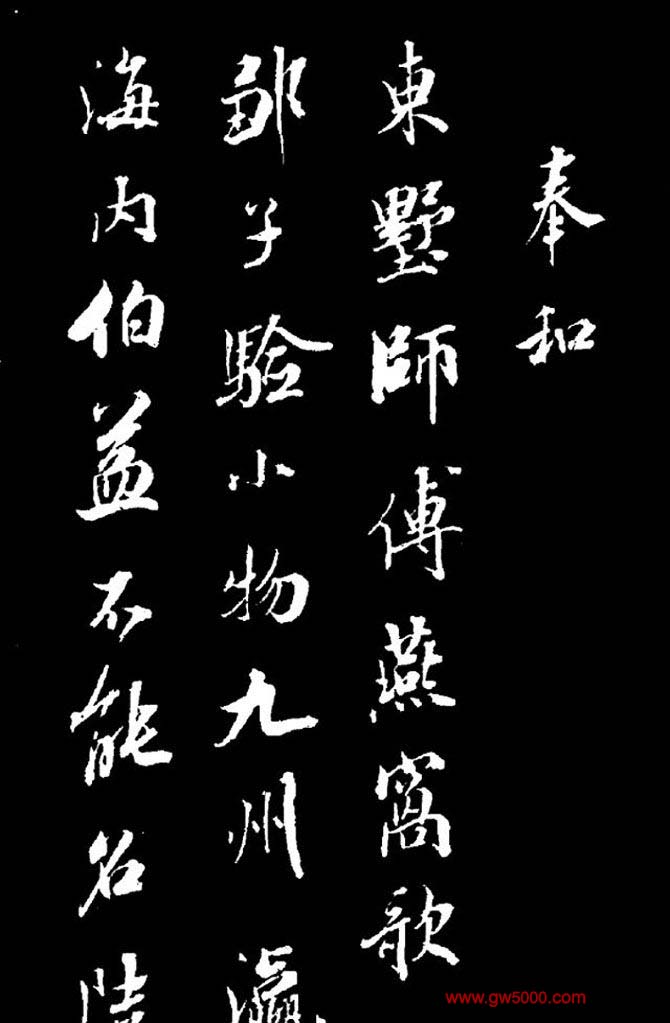 奉和
東墅師傅燕窩歌
鄒子驗小物九州瀛
海内伯益不能名陸
www.gw5000.com